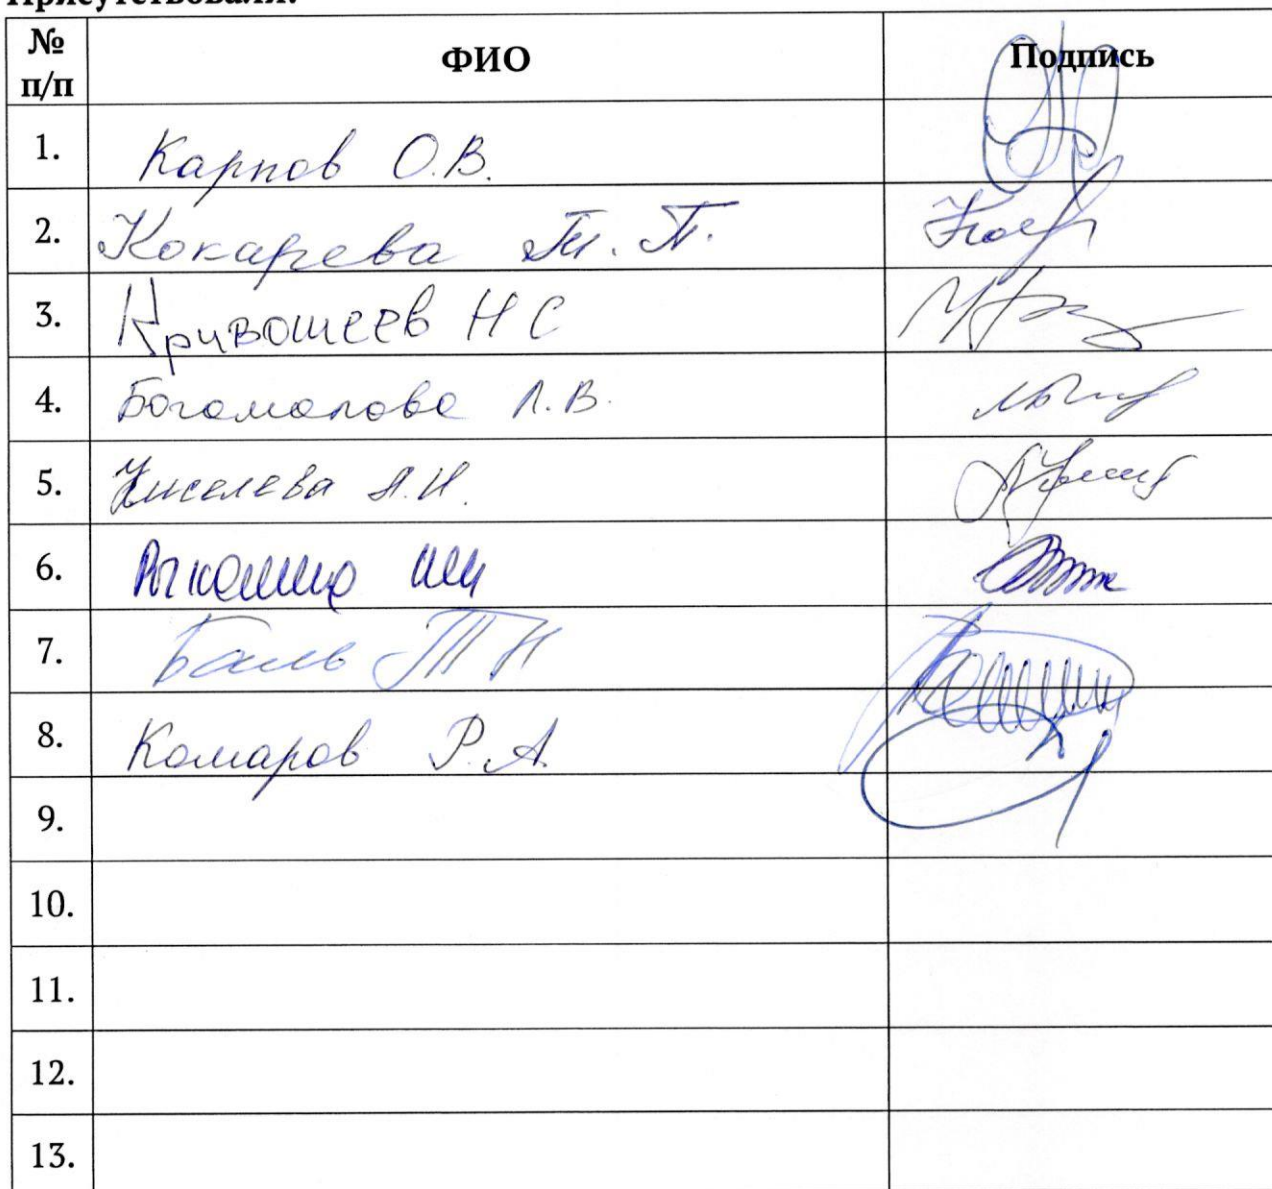 Присутствовали:
№ п/п ФИО Подпись
1. Карпов О.В.
2. Кокарева Т. П.
3. Кривошеев Н С
4. Богомолова Л.В.
5. Киселева А.И.
6.
7. Баль Т Н
8. Комаров Р.А.
9.
10.
11.
12.
13.